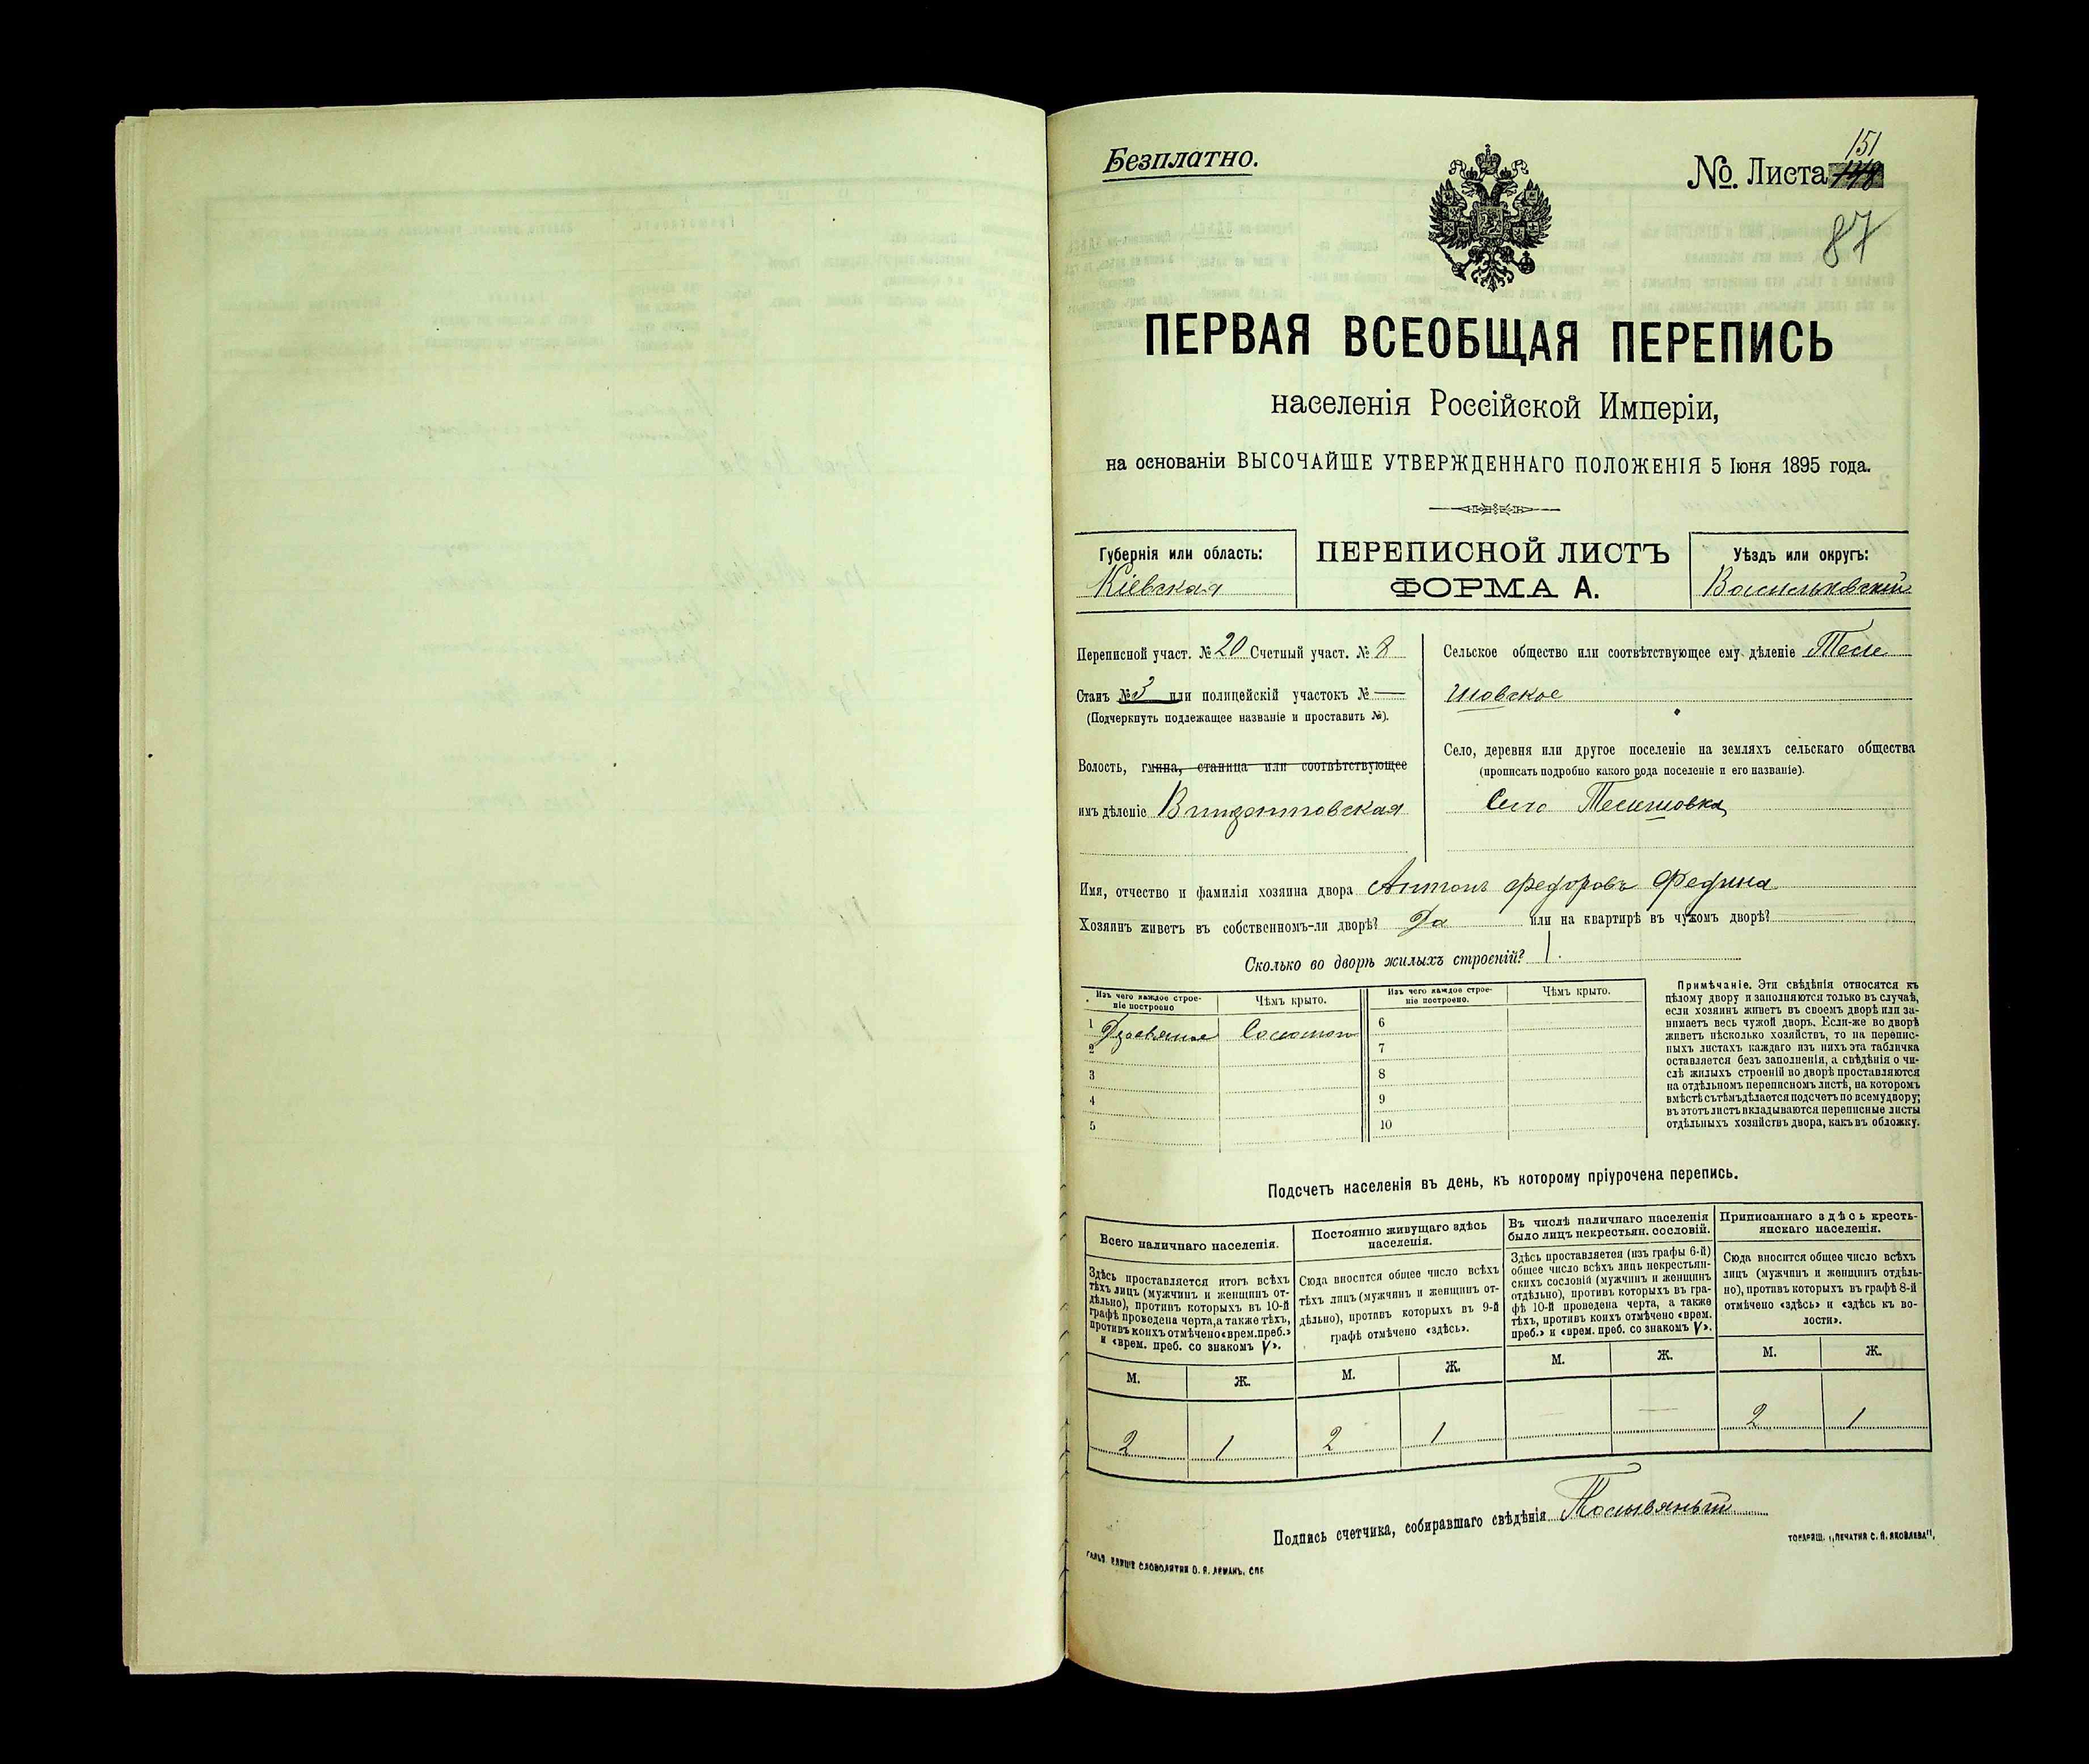 Безплатно.
№. Листа 151
87
ПЕРВАЯ ВСЕОБЩАЯ ПЕРЕПИСЬ
населенія Россійской Имперіи,
на основаніи ВЫСОЧАЙШЕ УТВЕРЖДЕННАГО ПОЛОЖЕНІЯ 5 Іюня 1895 года.
Губернія или область:
Кіевская
ПЕРЕПИСНОЙ ЛИСТЪ
ФОРМА А.
Уѣздъ или округъ:
Васильковскій
Переписной участ. № 20 Счетный участ. № 8
Станъ № 3 или полицейскій участокъ № —
(Подчеркнуть подлежащее названіе и проставить №).
Волость, гмина, станица или соотвѣтствующее
имъ дѣленіе
Сельское общество или соотвѣтствующее ему дѣленіе
Село, деревня или другое поселеніе на земляхъ сельскаго общества
(прописать подробно какого рода поселеніе и его названіе).
Село
Имя, отчество и фамилія хозяина двора Антонъ Федоровъ Федина
Хозяинъ живетъ въ собственномъ-ли дворѣ? Да или на квартирѣ въ чужомъ дворѣ?
Сколько во дворѣ жилыхъ строеній? 1.
Изъ чего каждое строе-
ніе построено
Чѣмъ крыто.
Изъ чего каждое строе-
ніе построено.
Чѣмъ крыто.
1 Соломою
2
3
4
5
6
7
8
9
10
Примѣчаніе. Эти свѣдѣнія относятся къ
цѣлому двору и заполняются только въ случаѣ,
если хозяинъ живетъ въ своемъ дворѣ или за-
нимаетъ весь чужой дворъ. Если-же во дворѣ
живетъ нѣсколько хозяйствъ, то на перепис-
ныхъ листахъ каждаго изъ нихъ эта табличка
оставляется безъ заполненія, а свѣдѣнія о чи-
слѣ жилыхъ строеній во дворѣ проставляются
на отдѣльномъ переписномъ листѣ, на которомъ
вмѣстѣ съ тѣмъ дѣлается подсчетъ по всему двору;
въ этотъ листъ вкладываются переписные листы
отдѣльныхъ хозяйствъ двора, какъ въ обложку.
Подсчетъ населенія въ день, къ которому пріурочена перепись.
Всего наличнаго населенія.
Здѣсь проставляется итогъ всѣхъ
тѣхъ лицъ (мужчинъ и женщинъ от-
дѣльно), противъ которыхъ въ 10-й
графѣ проведена черта, а также тѣхъ,
противъ коихъ отмѣчено «врем. преб.»
и «врем. преб. со знакомъ V».
М. Ж.
2 1
Постоянно живущаго здѣсь
населенія.
Сюда вносится общее число всѣхъ
тѣхъ лицъ (мужчинъ и женщинъ от-
дѣльно), противъ которыхъ въ 9-й
графѣ отмѣчено «здѣсь».
М. Ж.
2 1
Въ числѣ наличнаго населенія
было лицъ некрестьян. сословій.
Здѣсь проставляется (изъ графы 6-й)
общее число всѣхъ лицъ некрестьян-
скихъ сословій (мужчинъ и женщинъ
отдѣльно), противъ которыхъ въ гра-
фѣ 10-й проведена черта, а также
тѣхъ, противъ коихъ отмѣчено «врем.
преб.» и «врем. преб. со знакомъ V».
М. Ж.
— —
Приписаннаго здѣсь кресть-
янскаго населенія.
Сюда вносится общее число всѣхъ
лицъ (мужчинъ и женщинъ отдѣль-
но), противъ которыхъ въ графѣ 8-й
отмѣчено «здѣсь» и «здѣсь къ во-
лости».
М. Ж.
2 1
Подпись счетчика, собиравшаго свѣдѣнія
СЛОВОЛИТНИ О. И. ЛЕМАНЪ, СПБ
ТОВАРИЩ. „ПЕЧАТНЯ С. П. ЯКОВЛЕВА".